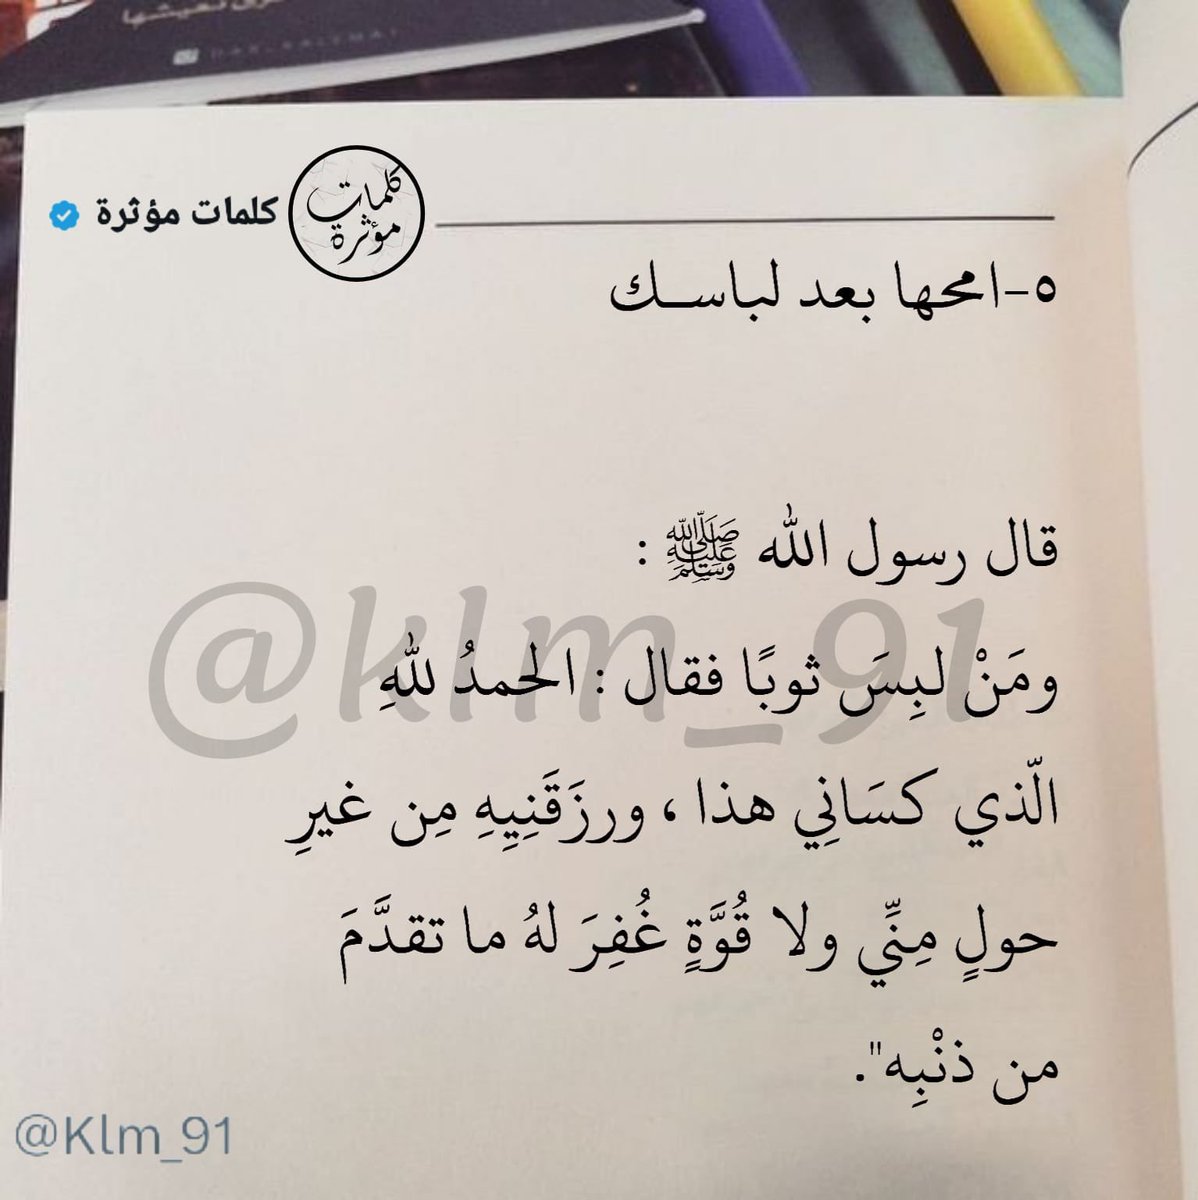 نعيشها
كلمات مؤثرة
كلمات
مؤثرة
٥-امحها بعد لباسـك
قال رسول الله ﷺ :
ومَنْ لبِسَ ثوبًا فقال : الحمدُ للهِ
الّذي كسَانِي هذا ، ورزَقَنِيِهِ مِن غيرِ
حولٍ مِنِّي ولا قُوَّةٍ غُفِرَ لهُ ما تقدَّمَ
من ذنْبِه".
@klm_91
@Klm_91